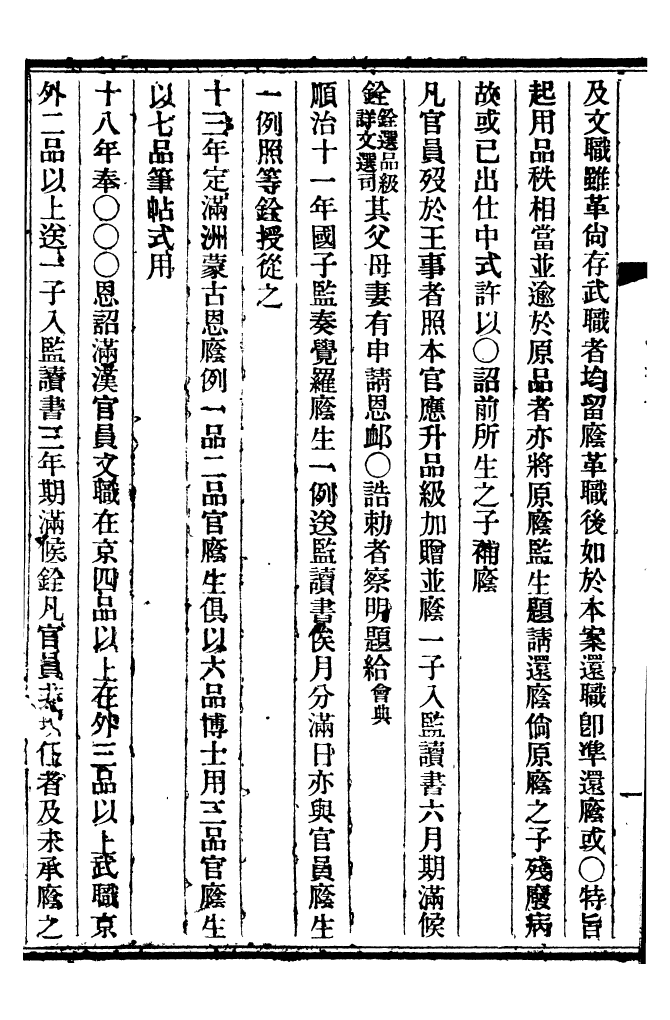 及文職雖革尙存武職者均留廕革職後如於本案還職卽準還廕或〇特旨
起用品秩相當並逾於原品者亦將原廕監生題請還廕倘原廕之子殘廢病
故或已出仕中式許以〇詔前所生之子補廕
凡官員歿於王事者照本官應升品級加贈並廕一子入監讀書六月期滿候
銓銓選品級詳文選司其父母妻有申請恩卹〇誥勅者察明題給會典
順治十一年國子監奏覺羅廕生一例送監讀書俟月分滿日亦與官員廕生
一例照等銓授從之
十三年定滿洲蒙古恩廕例一品二品官廕生俱以六品博士用三品官廕生
以七品筆帖式用
十八年奉〇〇〇恩詔滿漢官員文職在京四品以上在外三品以上武職京
外二品以上送一子入監讀書三年期滿候銓凡官員任者及未承廕之